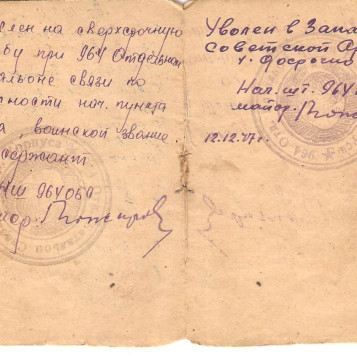 лен на сверхсрочную
бу при 964 Отдельном
альоне связи по
ности нач. пункта
а, воинское звание
сержант.
НШ 964 ОБС
ор.
Уволен в Запа
Советской Ар
г.
Нач. шт. 964
майор
12.12.47 г.